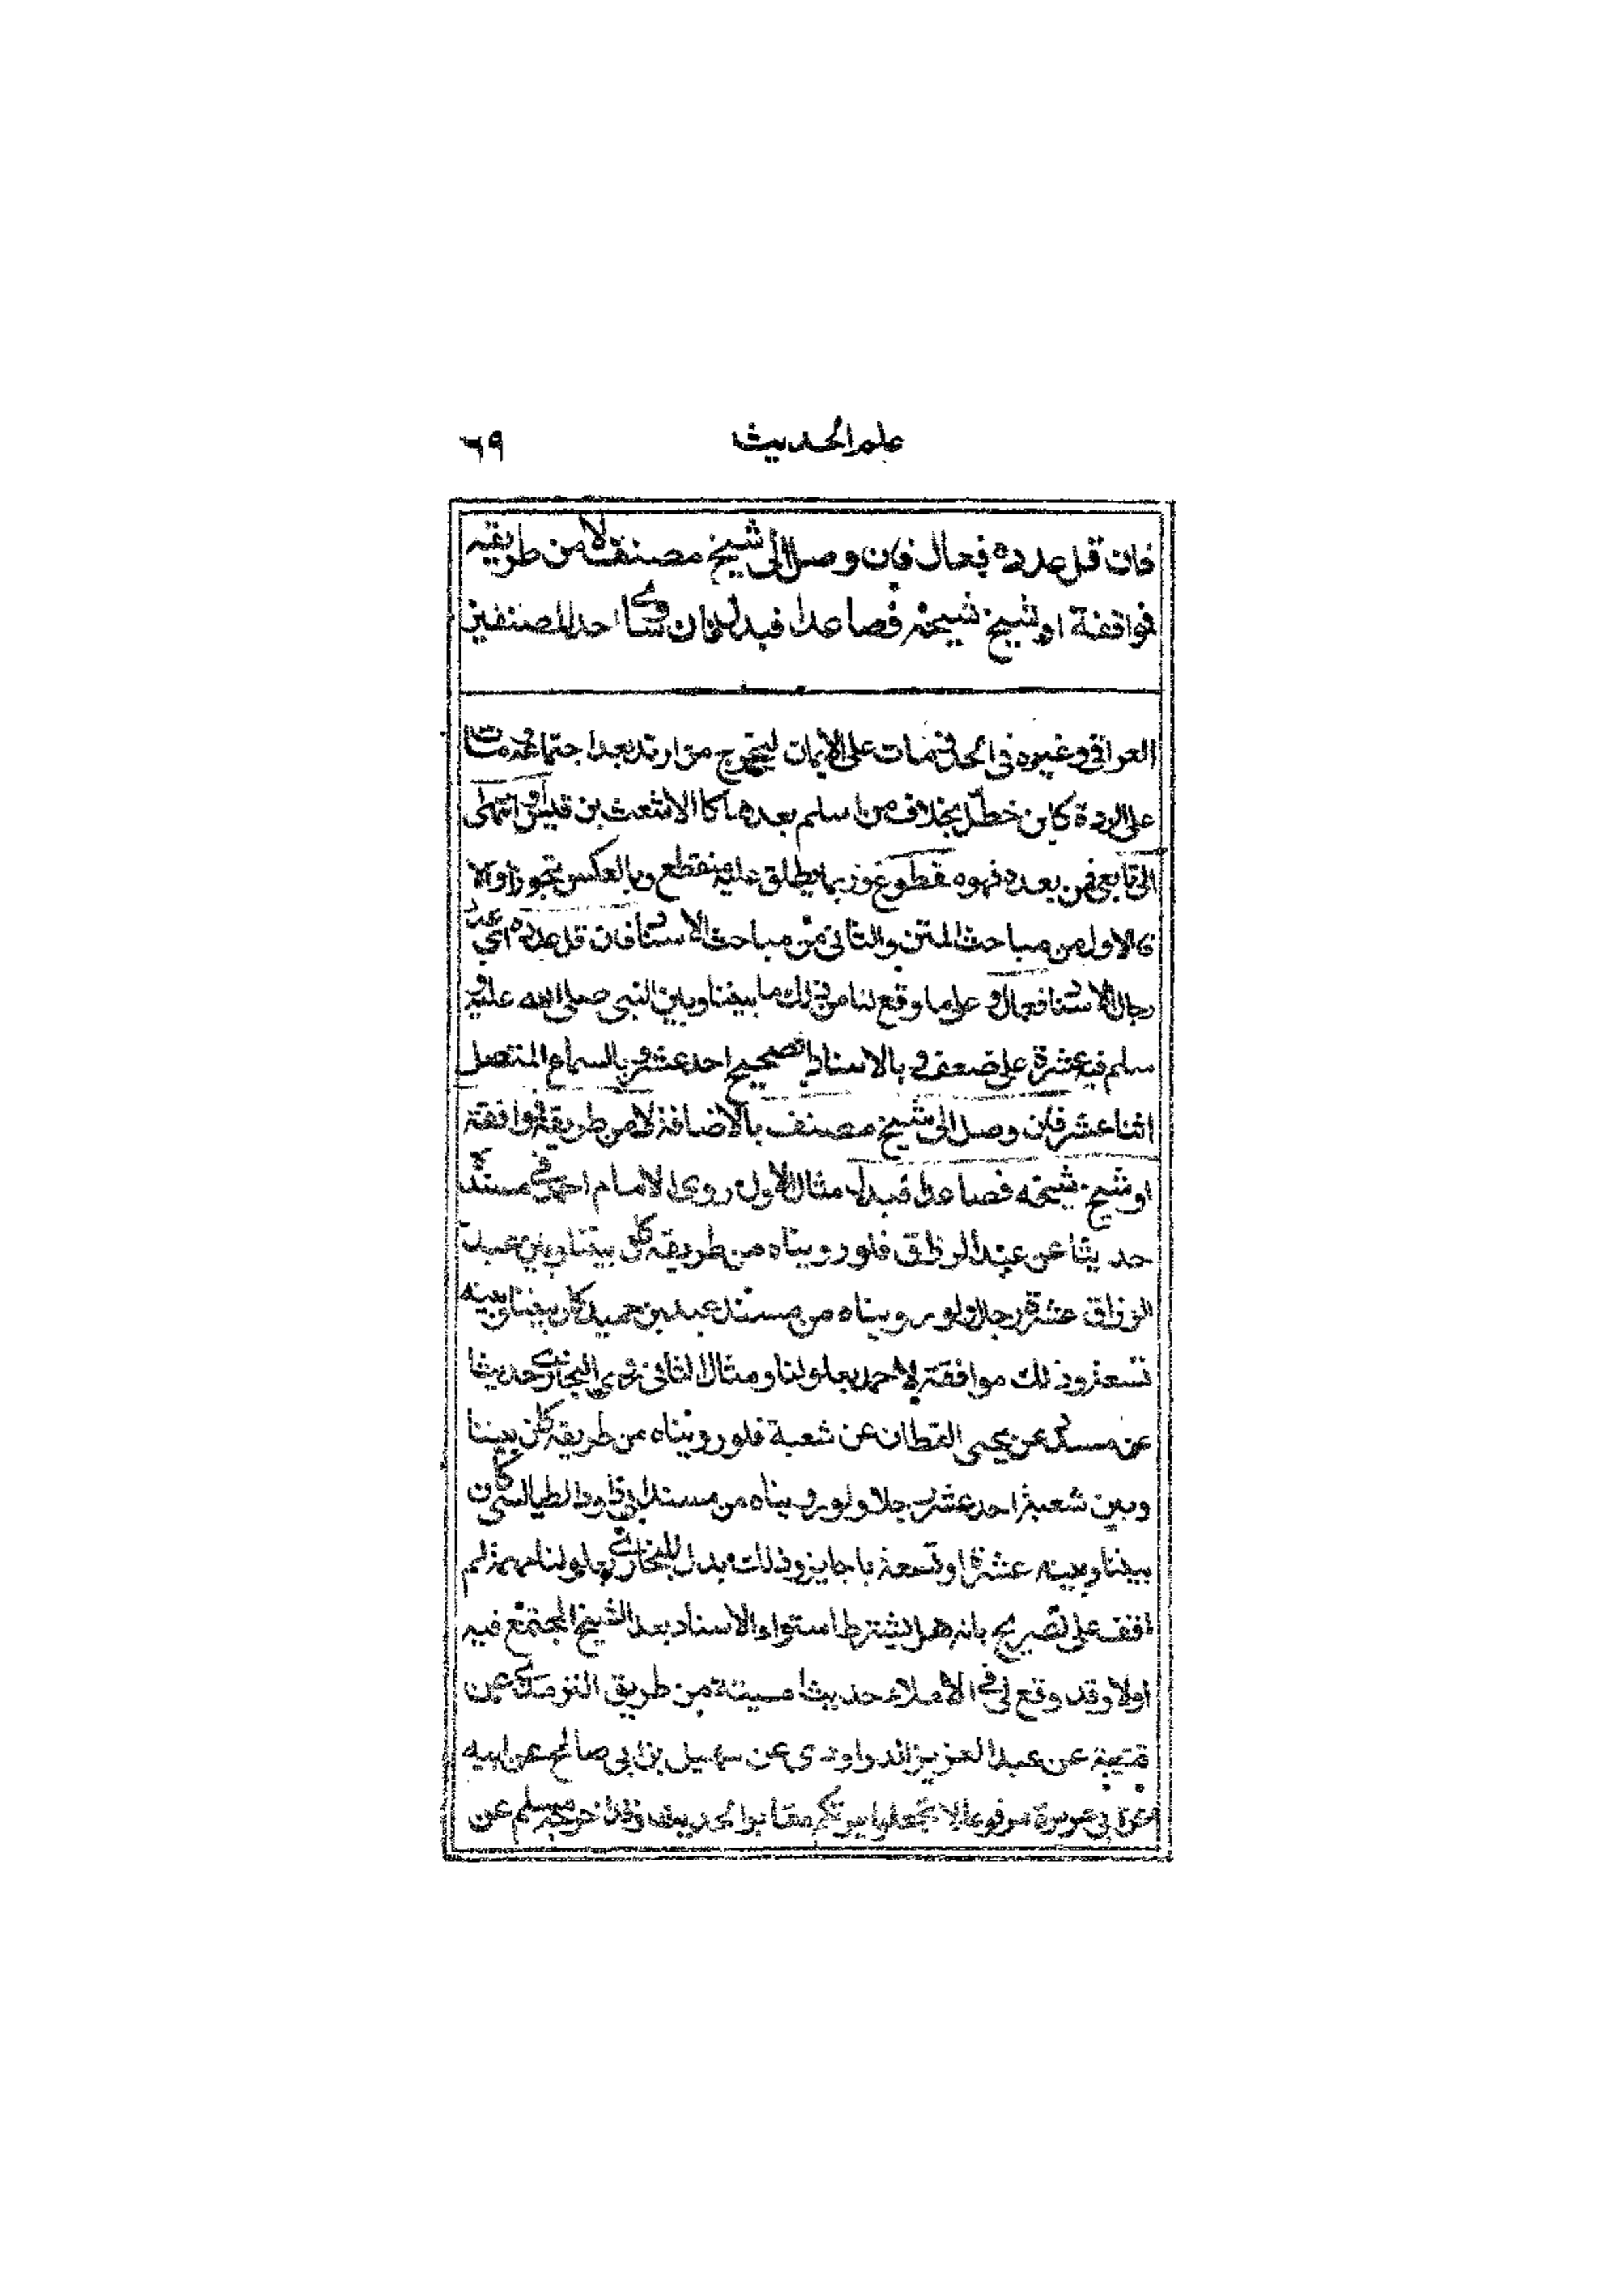 علم الحديث
٦٩
فان قل عدده فعال فان وصل الى شيخ مصنف لا من طريقه
فوافقة او شيخ شيخه فصاعدا فبدل فان ساوى احد المصنفين
العراقي وغيره في الحد ومات على الايمان ليخرج من ارتد بعد اجتماعه ومات
على الردة كابن خطل بخلاف من اسلم بعدها كالاشعث بن قيس او انتهى
الى تابعي فمن بعده فهو مقطوع وربما يطلق عليه منقطع وبالعكس تجوزا والا
فالاول من مباحث المتن والثاني من مباحث الاسناد فان قل عدده اي عدد
رجال الاسناد فعال وعلى ما وقع لنا من ذلك ما بيننا وبين النبي صلى الله عليه و
سلم فيه عشرة على ضعف وبالاسناد الصحيح احد عشر وبالسماع المتصل
اثنا عشر فان وصل الى شيخ مصنف بالاضافة لا من طريقه فوافقة
او شيخ شيخه فصاعدا فبدل مثال الاول روى الامام احمد في مسنده
حديثا عن عبد الرزاق فلو رويناه من طريقه كان بيننا وبين عبد
الرزاق عشرة رجال ولو رويناه من مسند عبد بن حميد كان بيننا وبينه
تسعة وذلك موافقة لاحمد بعلو لنا ومثال الثاني روى البخاري حديثا
عن مسدد عن يحيى القطان عن شعبة فلو رويناه من طريقه كان بيننا
وبين شعبة احد عشر رجلا ولو رويناه من مسند ابي داود الطيالسي كان
بيننا وبينه عشرة او تسعة باجايز وذلك بدل للبخاري بعلو لنا مهمة لم
اقف على تصريح بانه هل يشترط استواء الاسناد بعد الشيخ المجتمع فيه
اولا وقد وقع لي في الاملاء حديث من طريق الترمذي عن
قتيبة عن عبد العزيز الدراوردي عن سهيل بن ابي صالح عن ابيه
عن ابي هريرة مرفوعا لا تجعلوا بيوتكم مقابر الحديث وقد اخرجه مسلم عن